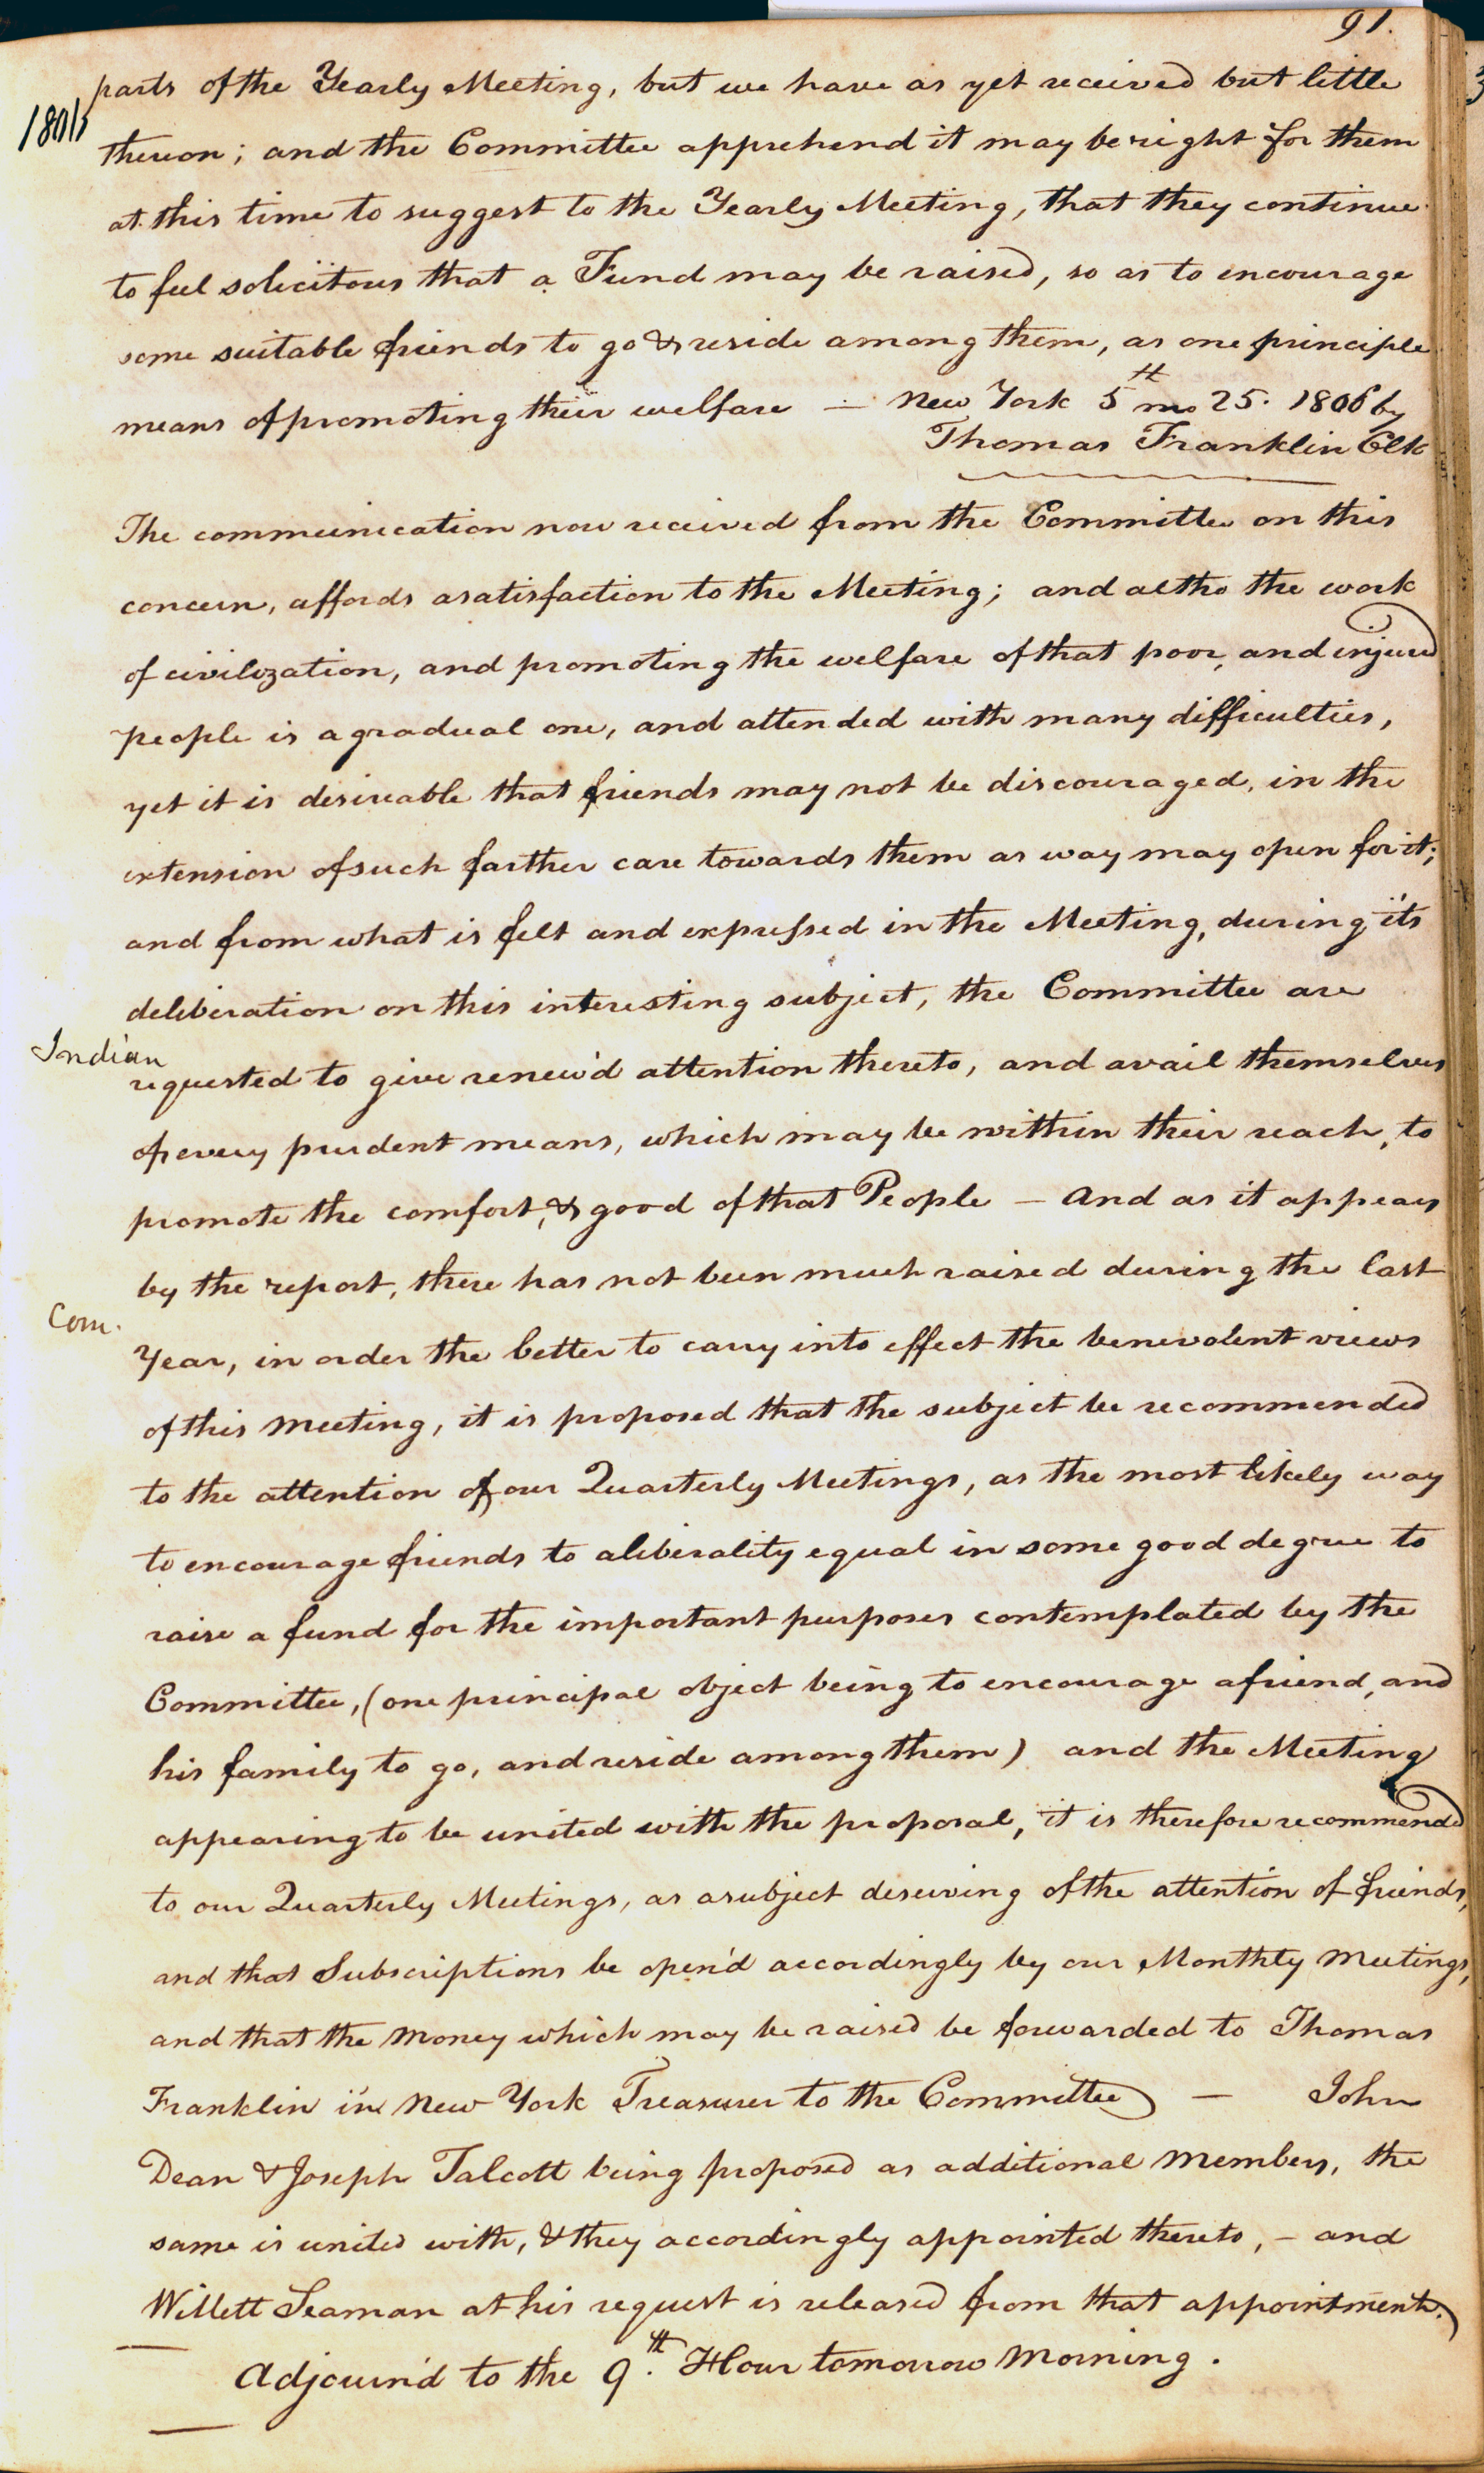 91.
parts of the Yearly Meeting, but we have as yet received but little
thereon; and the Committee apprehend it may be right for them
at this time to suggest to the Yearly Meeting, that they continue
to feel solicitous that a Fund may be raised, so as to encourage
some suitable friends to go & reside among them, as one principle
means of promoting their welfare — New York 5th mo 25. 1806 by
Thomas Franklin Clk
The communication now received from the Committee on this
concern, affords a satisfaction to the Meeting; and altho the work
of civilization, and promoting the welfare of that poor, and injured
people is a gradual one, and attended with many difficulties,
yet it is desireable that friends may not be discouraged, in the
extension of such farther care towards them as way may open for it;
and from what is felt and expressed in the Meeting, during its
deliberation on this interesting subject, the Committee are
Indian
requested to give renew'd attention thereto, and avail themselves
of every prudent means, which may be within their reach, to
promote the comfort, & good of that People — And as it appears
by the report, there has not been much raised during the last
Com.
Year, in order the better to carry into effect the benevolent views
of this Meeting, it is proposed that the subject be recommended
to the attention of our Quarterly Meetings, as the most likely way
to encourage friends to a liberality equal in some good degree to
raise a fund for the important purposes contemplated by the
Committee, (one principal object being to encourage a friend, and
his family to go, and reside among them) and the Meeting
appearing to be united with the proposal, it is therefore recommended
to our Quarterly Meetings, as a subject deserving of the attention of friends,
and that Subscriptions be open'd accordingly by our Monthly Meetings,
and that the Money which may be raised be forwarded to Thomas
Franklin in New York Treasurer to the Committee — John
Dean & Joseph Talcott being proposed as additional Members, the
same is united with, & they accordingly appointed thereto, — and
Willett Seaman at his request is released from that appointment.
Adjourn'd to the 9th. Hour tomorrow Morning.